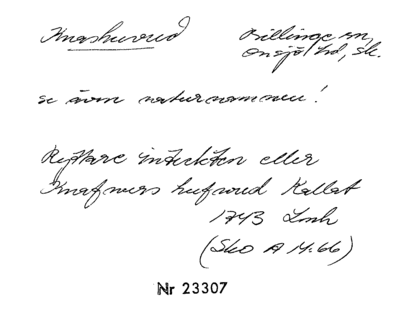 Knashuvud Billinge sn,
Onsjö hd, Sk.
se även naturnamnen!
Ryttare intekten eller
Knafwers hufwud Kallat
1743 Lmh
(Sko A M:66)
Nr 23307